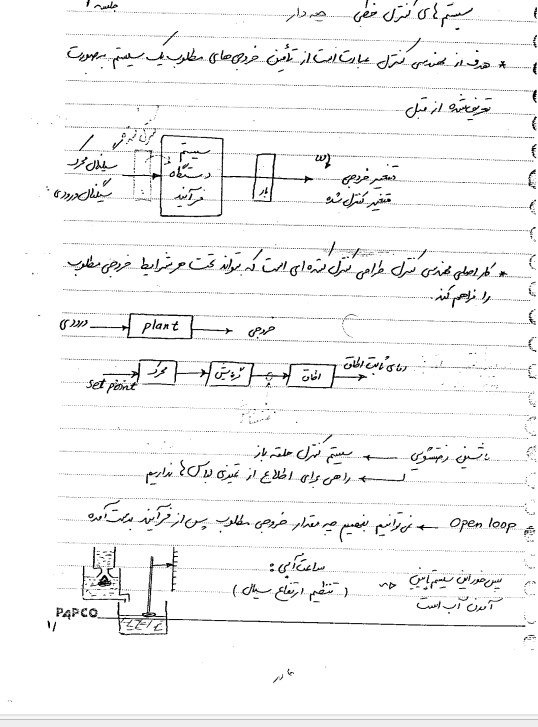 جلسه ۱
سیستم های کنترل خطی
* هدف از مهندسی کنترل عبارت است از تأمین خروجی های مطلوب یک سیستم بصورت
تعریف شده از قبل
سیگنال محرک
سیگنال ورودی
سیستم
دستگاه
فرآیند
بار
متغیر خروجی
متغیر کنترل شده
* کار اصلی مهندسی کنترل طراحی کنترل کننده ای است که بتواند تحت هر شرایط خروجی مطلوب
را فراهم کند.
ورودی
plant
خروجی
set point
محرک
گرمایش
اتاق
دمای ثابت اتاق
ماشین رختشویی ← سیستم کنترل حلقه باز
← راهی برای اطلاع از تمیزی لباس ها نداریم
Open loop ← نمی توانیم بفهمیم چه مقدار خروجی مطلوب پس از فرآیند بدست آمده
ساعت آبی :
( تنظیم ارتفاع سیال )
پس خور این سیستم پایین
آمدن آب است
PAPCO
۱/